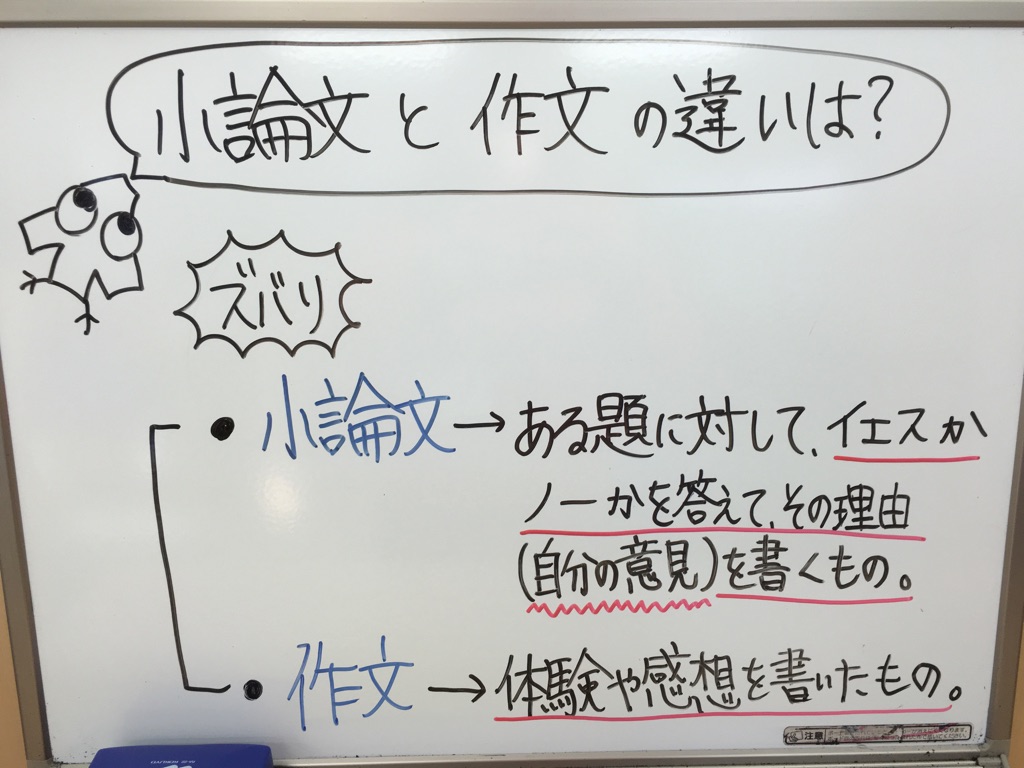 小論文と作文の違いは?
ズバリ
• 小論文→ある題に対して、イエスか
ノーかを答えて、その理由
(自分の意見)を書くもの。
• 作文→体験や感想を書いたもの。
注意